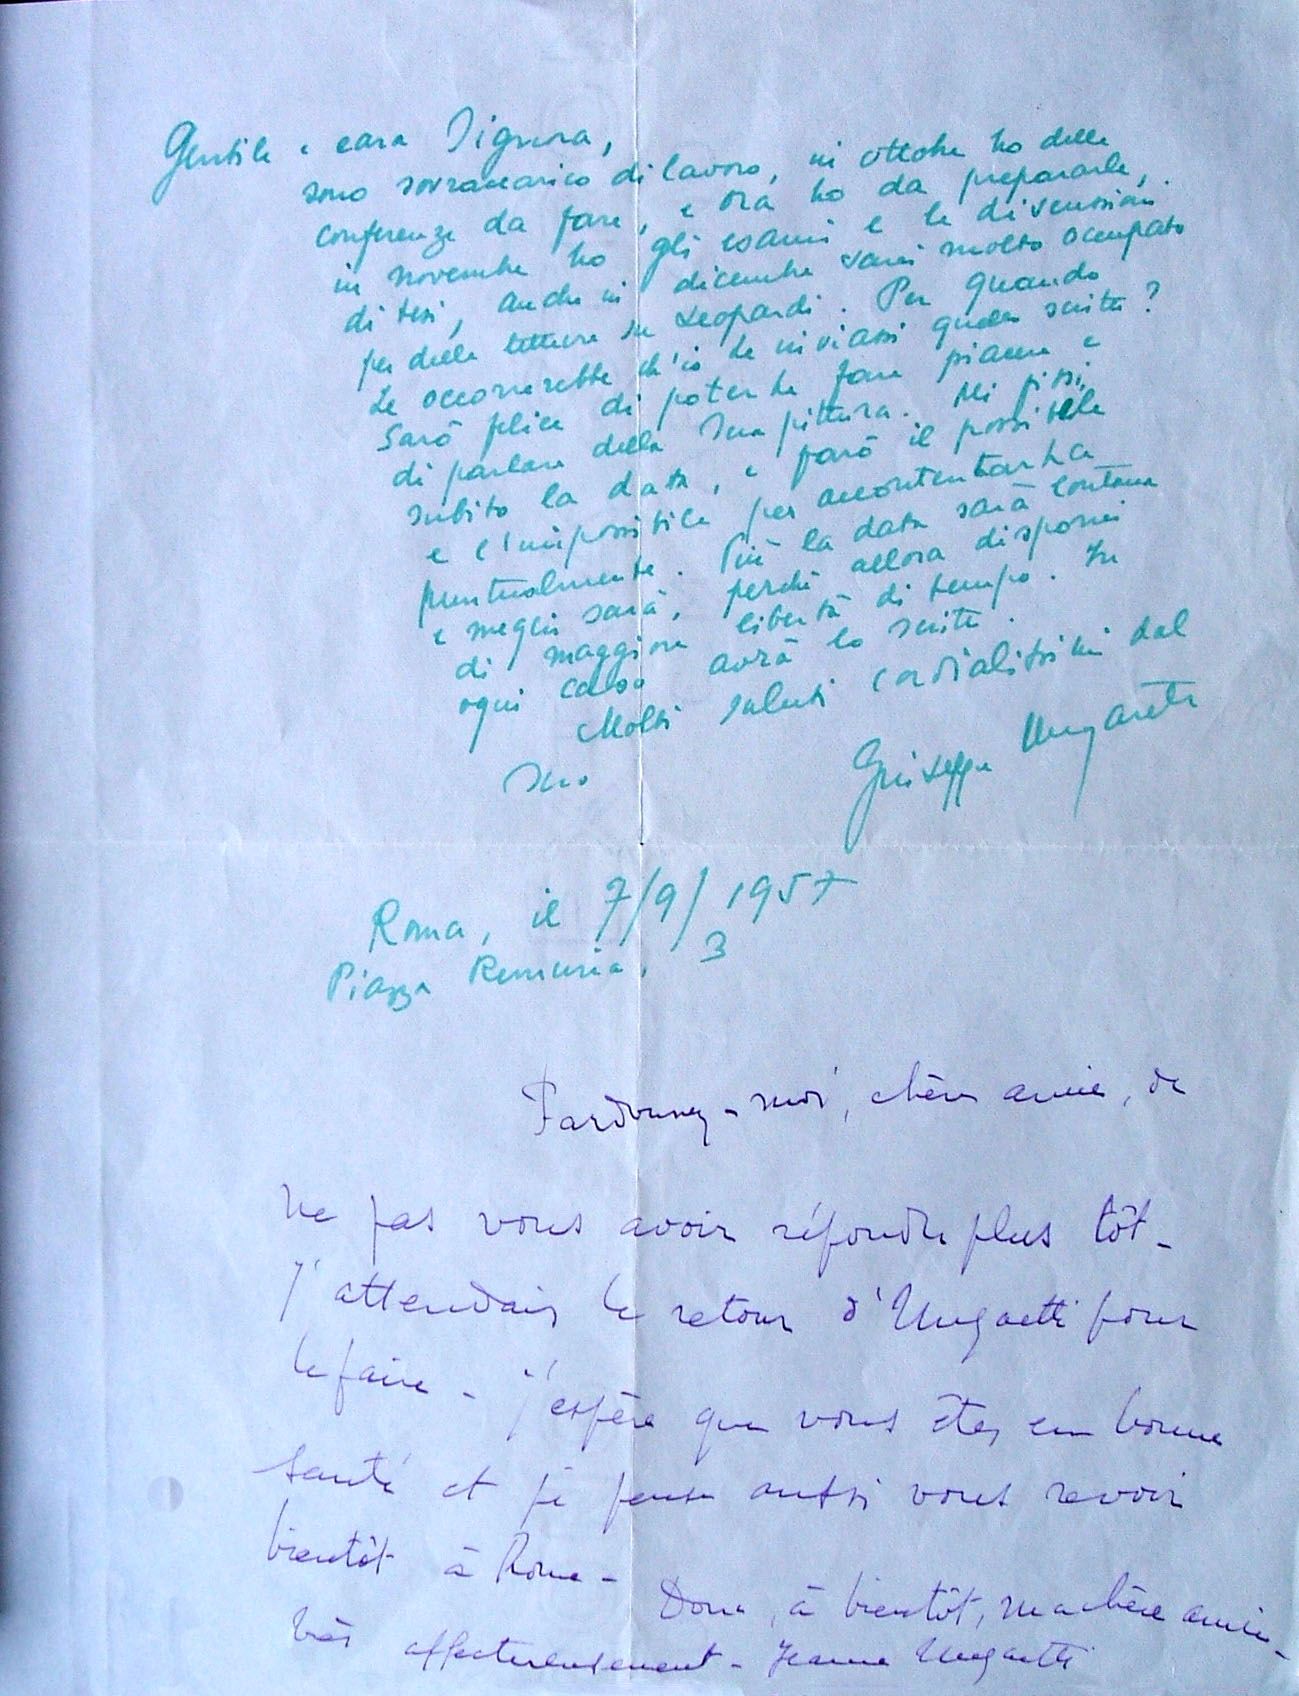 Gentile e cara Signora,
sono sovraccarico di lavoro, in ottobre ho delle
conferenze da fare, e ora ho da prepararle,
in novembre ho gli esami e le discussioni
di tesi, anche in dicembre sarò molto occupato
per delle letture su Leopardi. Per quando
Le occorrerebbe ch'io Le inviassi quello scritto?
Sarò felice di poterLe fare piacere e
di parlare della Sua pittura. Mi fissi
subito la data, e farò il possibile
e l'impossibile per accontentarLa
puntualmente. Più la data sarà lontana
e meglio sarà, perché allora disporrei
di maggiore libertà di tempo. In
ogni caso avrà lo scritto.
Molti saluti cordialissimi dal
Suo
Giuseppe Ungaretti
Roma, il 7/9/1957
Piazza Remuria, 3
Pardonnez-moi, chère amie, de
ne pas vous avoir répondu plus tôt-
J'attendais le retour d'Ungaretti pour
le faire - J'espère que vous êtes en bonne
santé et je pense aussi vous revoir
bientôt à Rome - Donc, à bientôt, ma chère amie-
très affectueusement - Jeanne Ungaretti